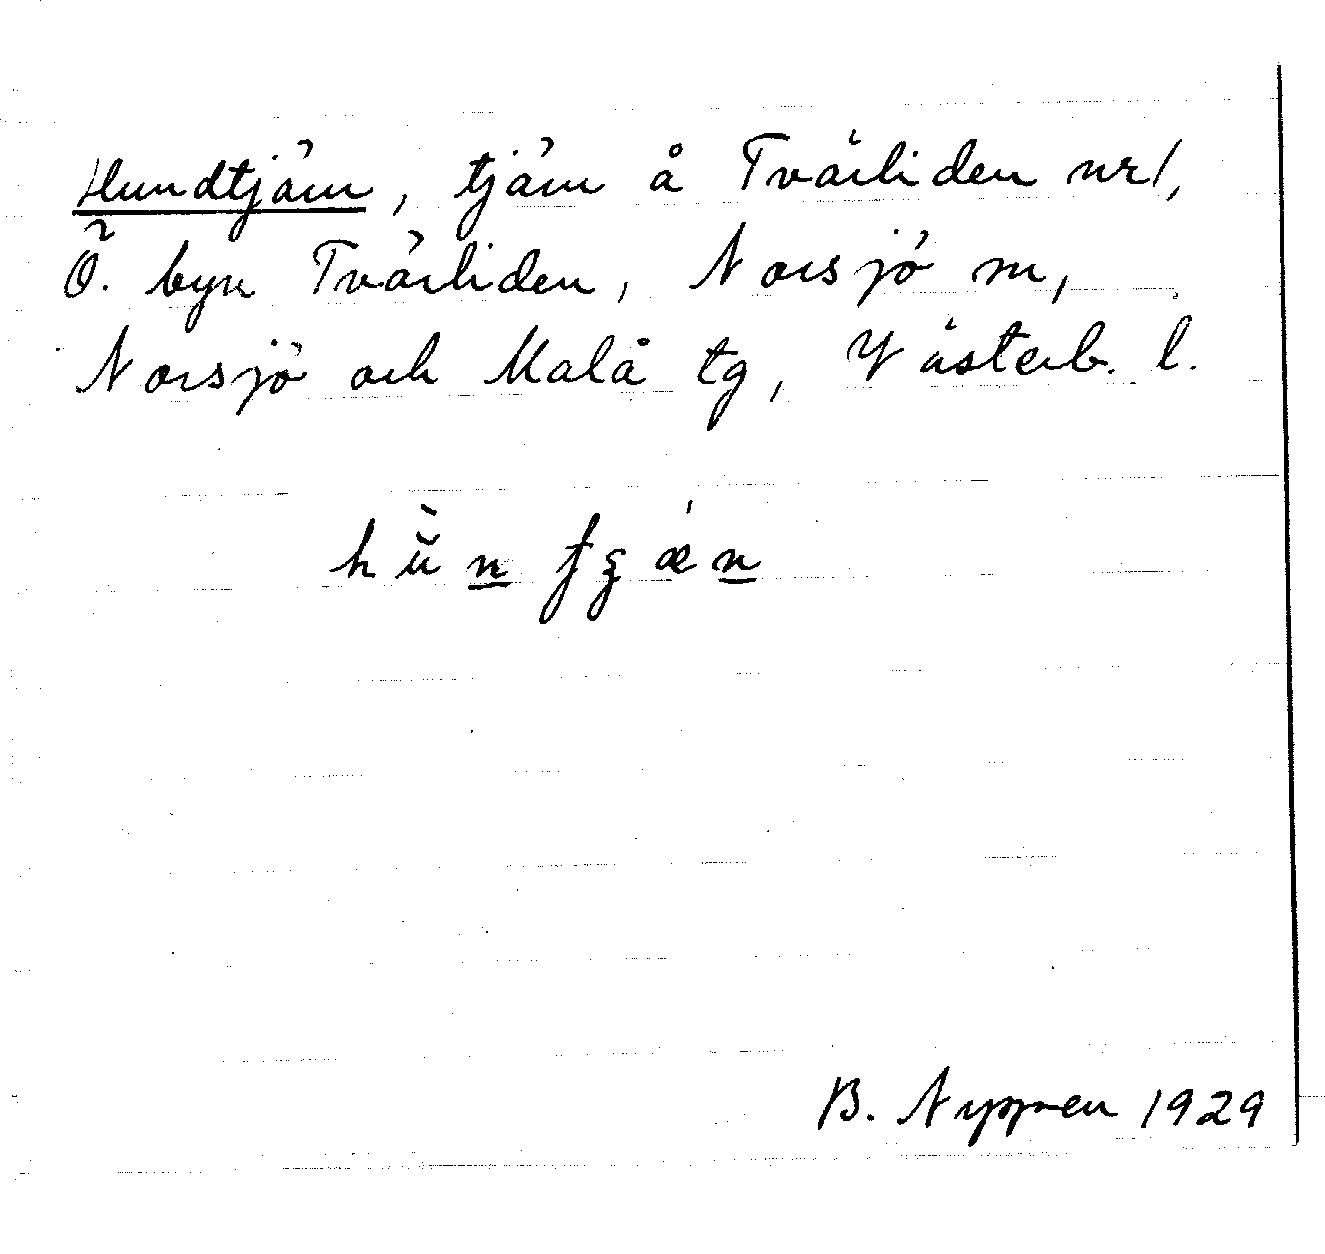 Hundtjärn, tjärn å Tvärliden nr 1,
Ö. byn Tvärliden, Norsjö sn,
Norsjö och Malå tg, Västerb. l.
B. 1929